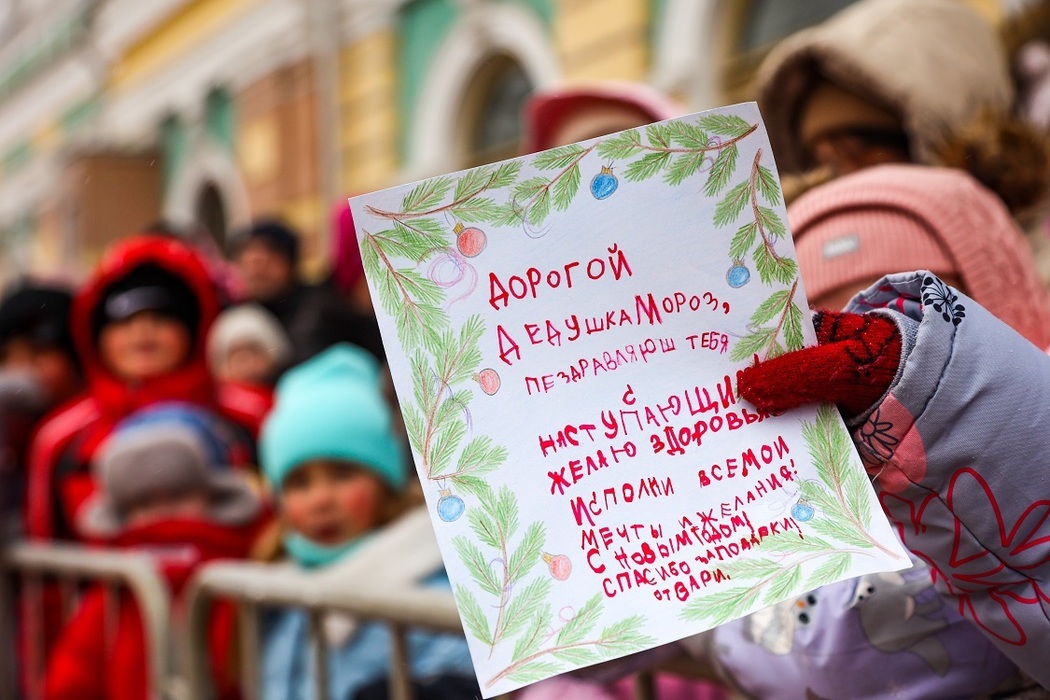 ДОРОГОЙ
ДЕДУШКА МОРОЗ,
ПЕЗДРАВЛЯЮШ ТЕБЯ
С
НАСТУПАЮЩИ
ЖЕЛАЮ ЗДОРОВЬЯ
ИСПОЛНИ ВСЕМОИ
МЕЧТЫ ИЖЕЛАНИЯ!
С НОВЫМ ГОДОМ!
СПАСИБО ЗАПОДАРКИ!
ОТ ВАРИ.